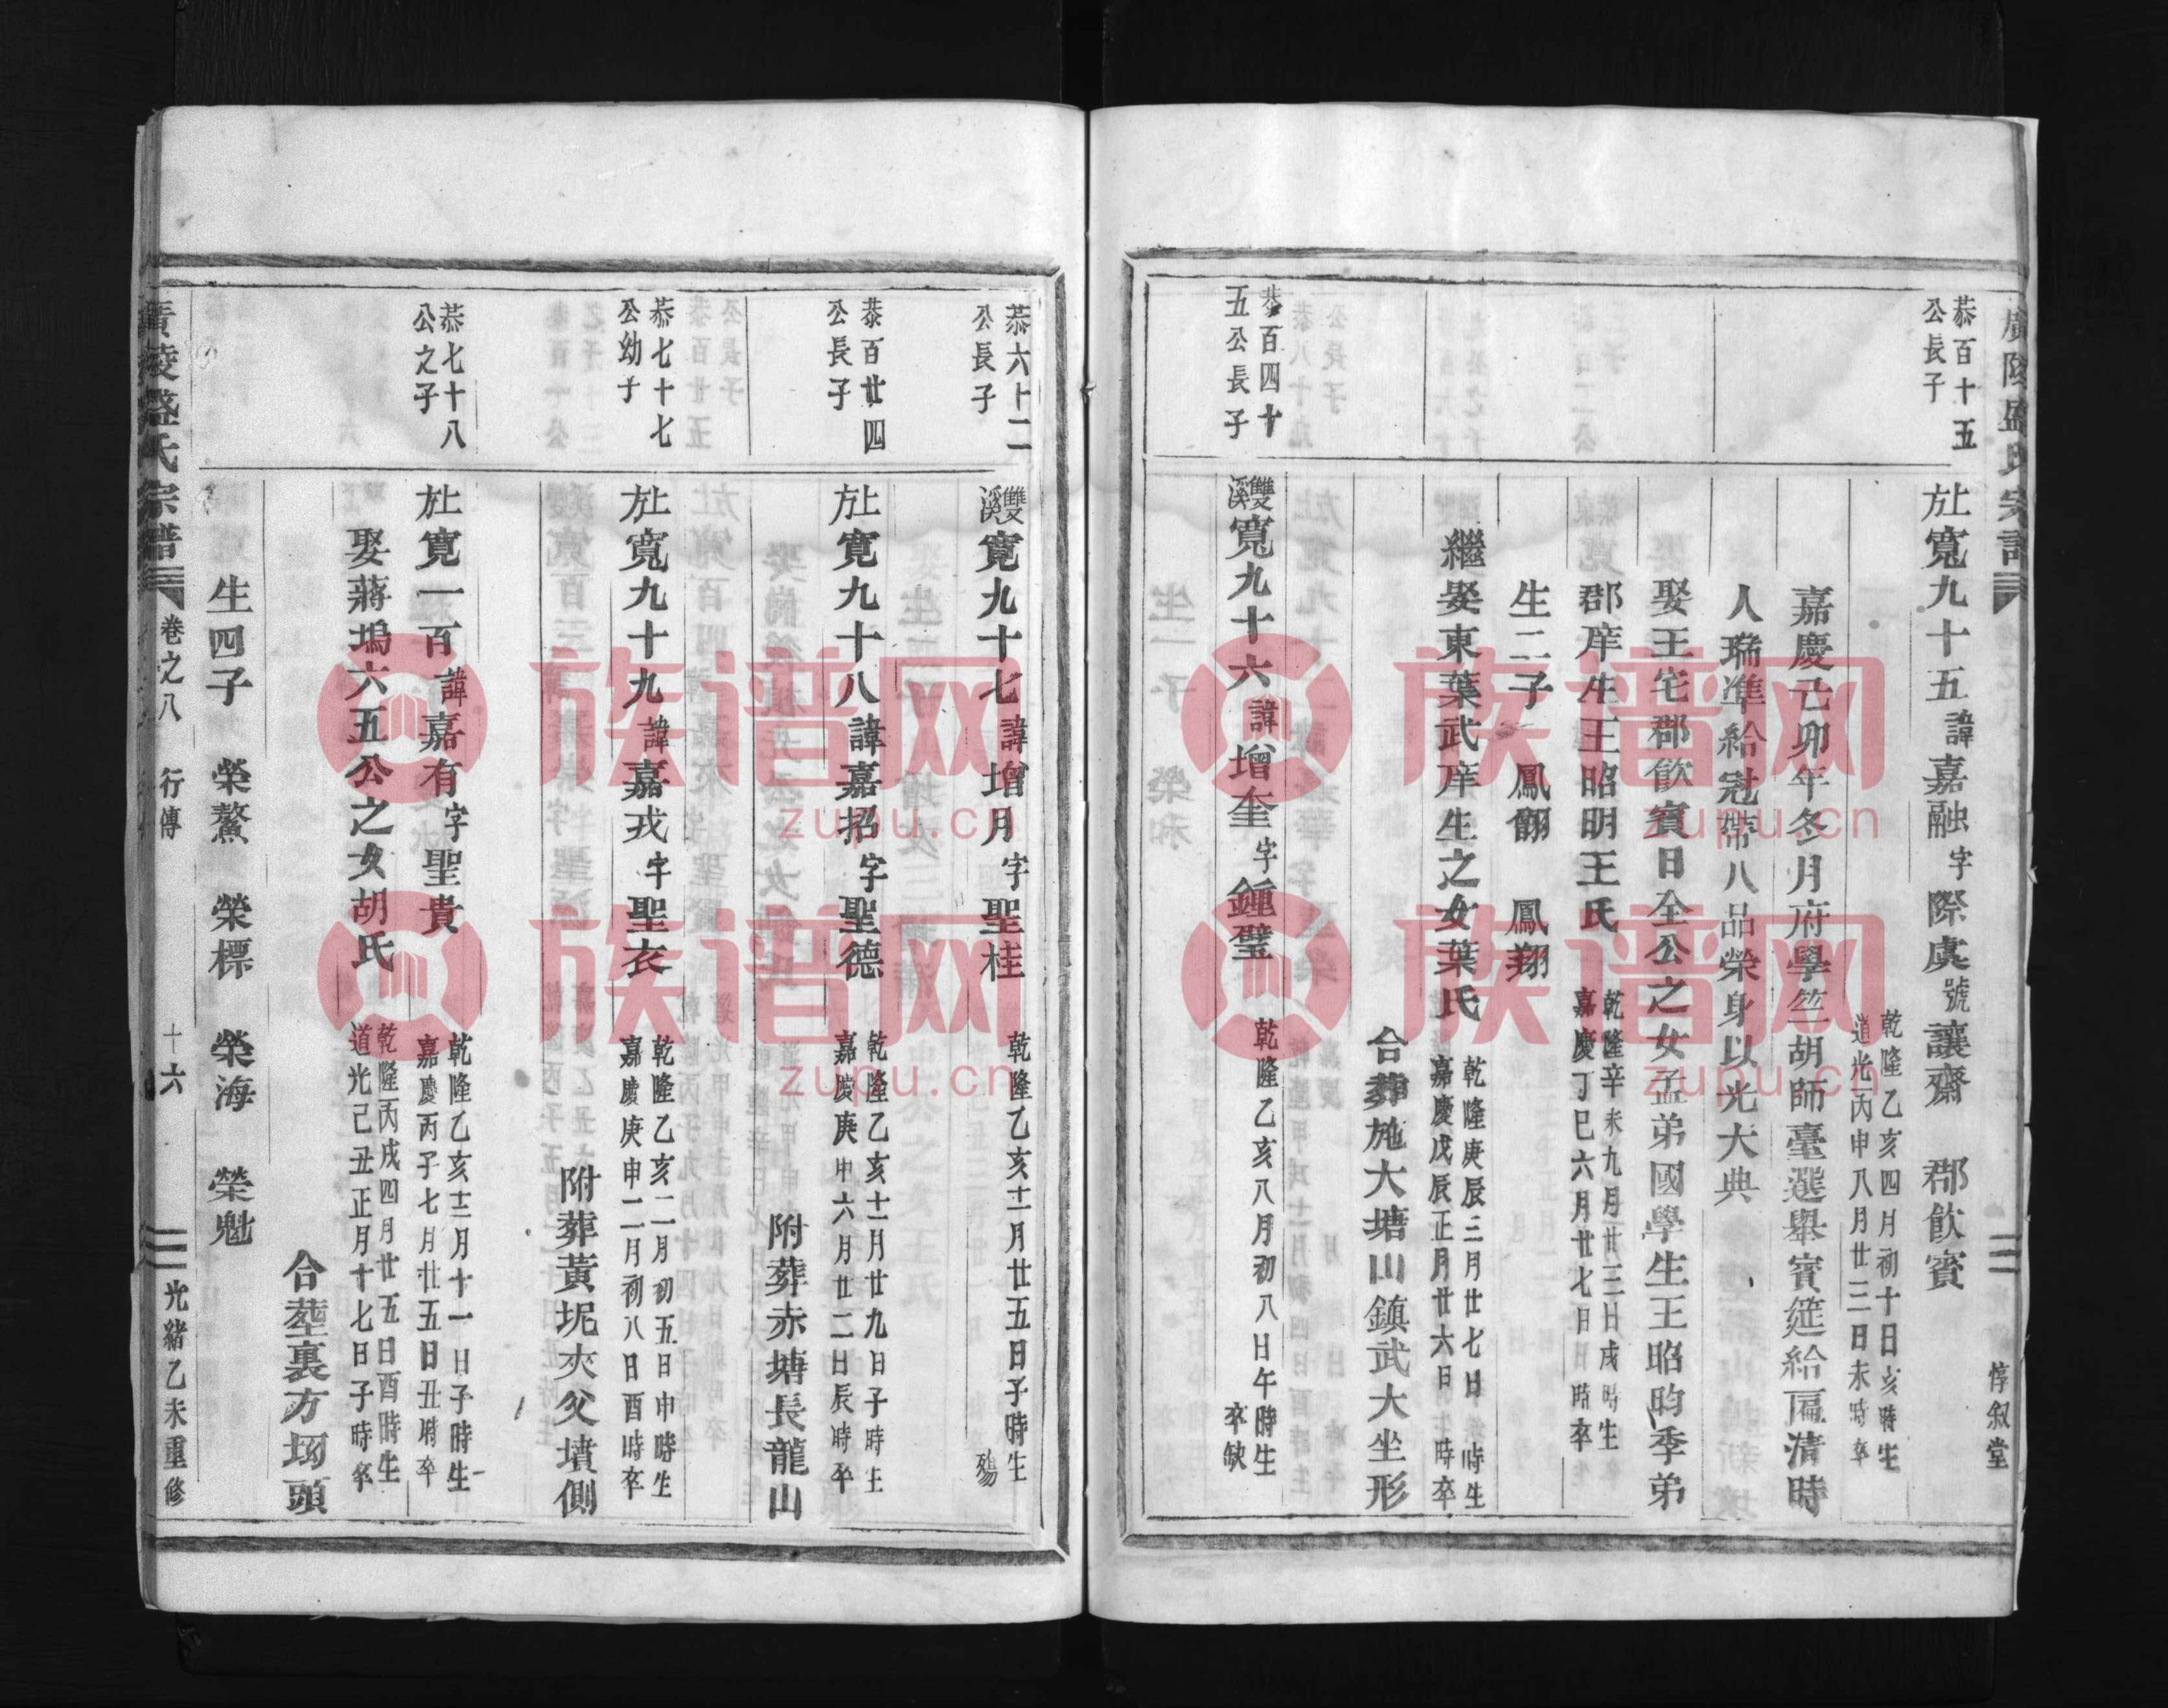 廣陵盛氏宗譜
惇叙堂
恭百十五
公長子
上方寬九十五諱嘉融字際虞號讓齋 郡飲賓
乾隆乙亥四月初十日亥時生
道光丙申八月廿三日未時卒
嘉慶己卯年冬月府學竺胡師臺選舉賓筵給匾淸時
人瑞準給冠帶八品榮身以光大典
娶王宅郡飲賓日全公之女孟弟國學生王昭昀季弟
郡庠生王昭明王氏
乾隆辛未九月廿三日戌時生
嘉慶丁巳六月廿七日 時卒
生二子 鳳翩 鳳翔
繼娶東葉武庠生之女葉氏
乾隆庚辰三月廿七日 時生
嘉慶戊辰正月廿六日 時卒
合葬施大塘山鎮武大坐形
恭百四十
五公長子
雙溪寬九十六諱增奎字鍾璧
乾隆乙亥八月初八日午時生
卒缺
恭六十二
公長子
雙溪寬九十七諱增月字聖桂
乾隆乙亥十一月廿五日子時生
殤
恭百廿四
公長子
上方寬九十八諱嘉招字聖德
乾隆乙亥十一月廿九日子時生
嘉慶庚申六月廿二日辰時卒
附葬赤塘長龍山
恭七十七
公幼子
上方寬九十九諱嘉戎字聖衣
乾隆乙亥十二月初五日申時生
嘉慶庚申二月初八日酉時卒
附葬黃坭夾父墳側
恭七十八
公之子
上方寬一百諱嘉有字聖貴
乾隆乙亥十二月十一日子時生
嘉慶丙子七月廿五日丑時卒
娶蔣塢六五公之女胡氏
乾隆丙戌四月廿五日酉時生
道光己丑正月十七日子時卒
合塟裏方坳頭
生四子 榮鰲 榮標 榮海 榮魁
廣陵盛氏宗譜 卷之八 行傳 十六 光緒乙未重修
族谱网
zupu.cn
族谱网
zupu.cn
族谱网
zupu.cn
族谱网
zupu.cn